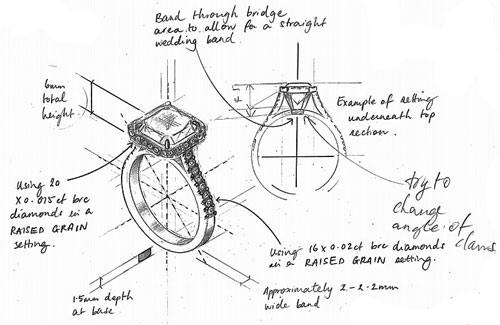 Band through bridge
area to allow for a straight
wedding band.
6mm
total
height
Example of setting
underneath top
section.
Using 20
x 0.015ct brc
diamonds in a
RAISED GRAIN
setting.
try to
change
angle of
claws.
Using 16 x 0.02ct brc diamonds
in a RAISED GRAIN setting.
1.5mm depth
at base.
Approximately 2-2.2mm
wide band